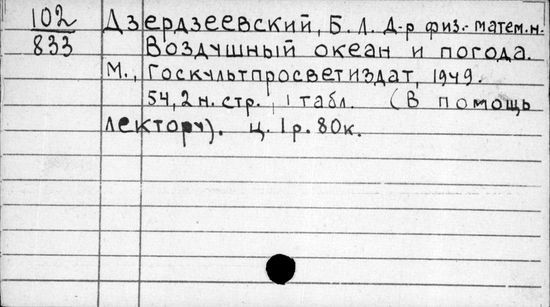 102 Дзердзеевский, Б. Л. Д-р физ.-матем.н.
833 Воздушный океан и погода.
М., Госкультпросветиздат, 1949.
54,2 н. стр., 1 табл. (В помощь
лектору). ц. 1 р. 80к.